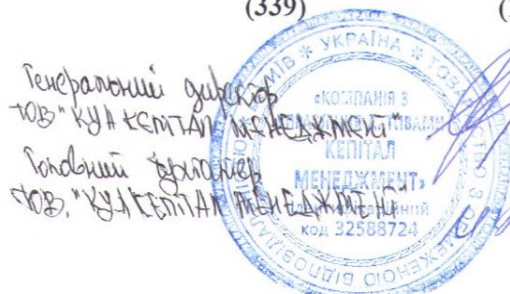 (339)
Генеральний директор
ТОВ "КУА КЕПІТАЛ МЕНЕДЖМЕНТ"
Головний бухгалтер
ТОВ. "КУА КЕПІТАЛ МЕНЕДЖМЕНТ"
УКРАЇНА
«КОМПАНІЯ З
КЕПІТАЛ
МЕНЕДЖМЕНТ»
код 32588724